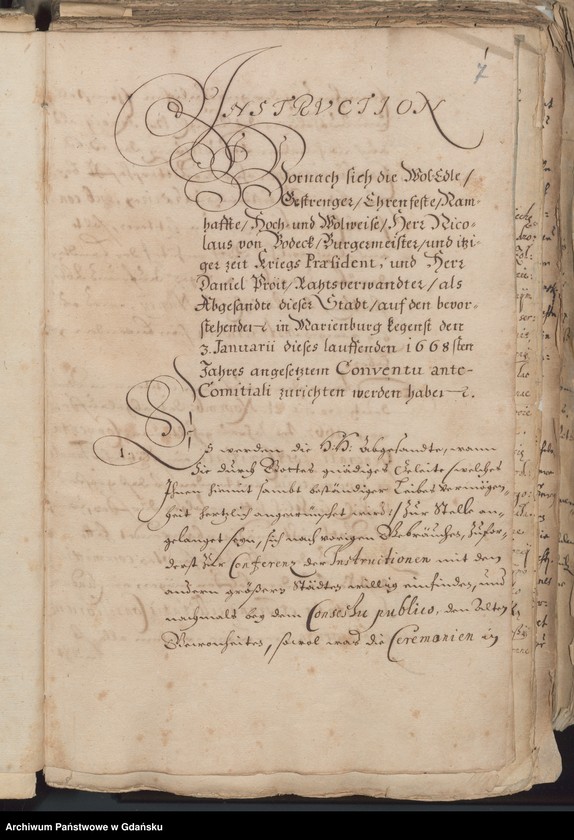 7
INSTRVCTION
Wornach sich die Wol-Edle/
Gestrenger/Ehrenfeste/Nam-
haffte/Hoch-und Wolweise/Herr Nico-
laus von Bodeck/Burgermeister/und itzi-
ger zeit Kriegs Præsident, und Herr
Daniel Proit/Rahtsverwandter/als
Abgesandte dieser Stadt/auf den bevor-
stehenden in Marienburg kegenst den
3. Januarii dieses lauffenden 1668sten
Jahres angesetztem Conventu ante-
Comitiali zurichten werden haben.
1. Es werden die HH: Abgesandte, wann
Sie durch Gottes gnädiges Geleite/welches
Ihnen hiemit sambt beständiger Leibes Vermögen-
heit hertzlich angewunschet wird/zur Stelle an-
gelanget seyn, sich nach vorigen Gebräuchen, zufor-
derst zur Conferenz der Instructionen mit den
andern größern Städten willig einfinden, und
nachmals bey dem Consessu publico, den Alten
Gewonheiten, sowol was die Ceremonien in
Archiwum Państwowe w Gdańsku